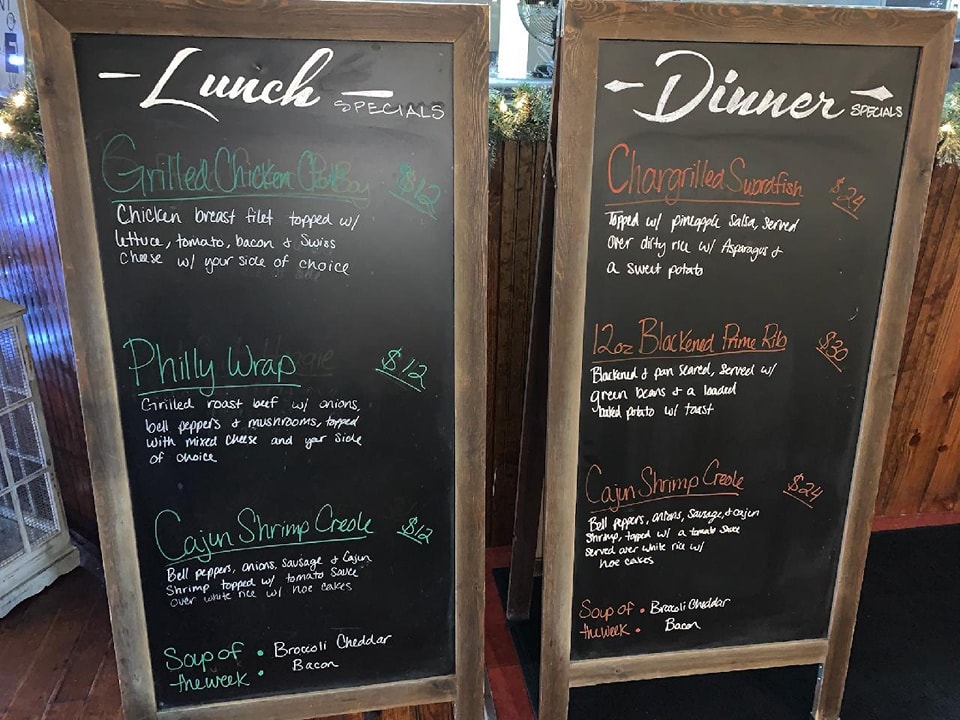 Lunch SPECIALS
Grilled Chicken PoBoy $12
Chicken breast filet topped w/
lettuce, tomato, bacon & Swiss
Cheese w/ your side of choice
Philly Wrap $12
Grilled roast beef w/ onions,
bell peppers & mushrooms, topped
with mixed cheese and your side
of choice
Cajun Shrimp Creole $12
Bell peppers, onions, sausage & Cajun
Shrimp topped w/ tomato sauce
over white rice w/ hoe cakes
Soup of • Broccoli Cheddar
the week • Bacon
Dinner SPECIALS
Chargrilled Swordfish $24
Topped w/ pineapple salsa, served
over dirty rice w/ Asparagus &
a sweet potato
12oz Blackened Prime Rib $30
Blackened & pan seared, served w/
green beans & a loaded
baked potato w/ toast
Cajun Shrimp Creole $24
Bell peppers, onions, sausage, & cajun
Shrimp, topped w/ a tomato sauce
served over white rice w/
hoe cakes
Soup of • Broccoli Cheddar
the week • Bacon